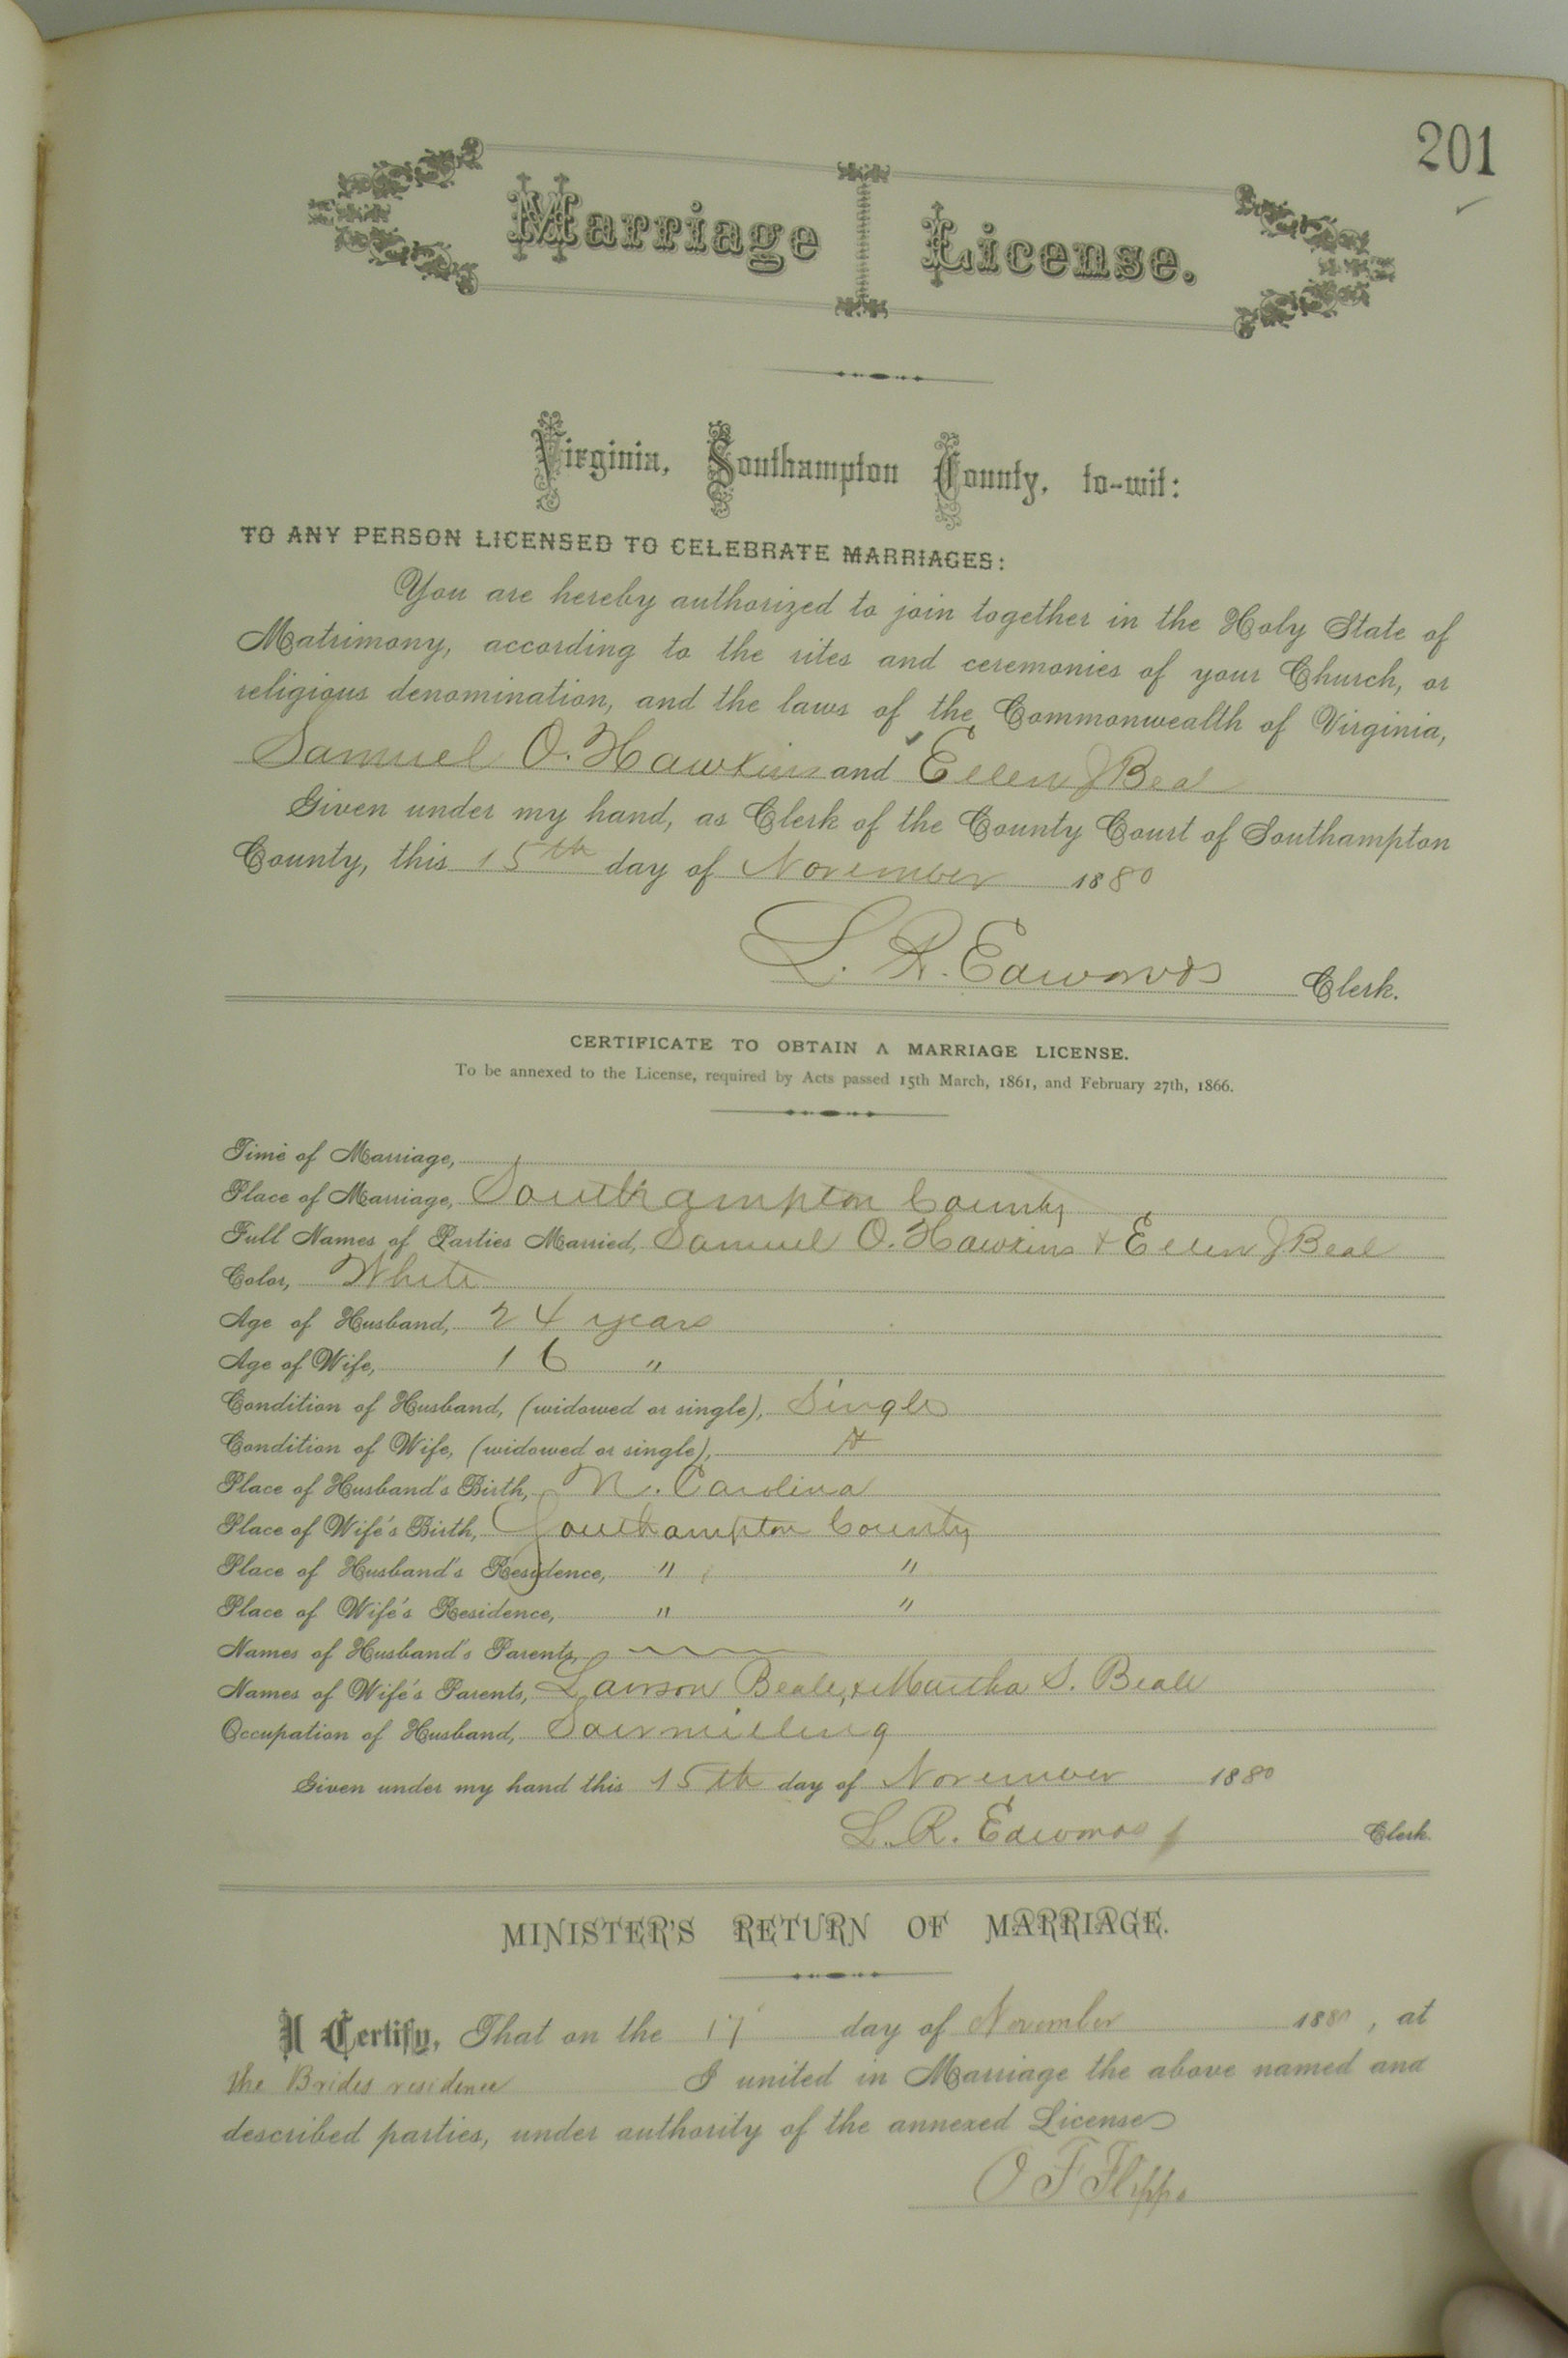 201
Marriage License.
Virginia, Southampton County, to-wit:
TO ANY PERSON LICENSED TO CELEBRATE MARRIAGES:
You are hereby authorized to join together in the Holy State of
Matrimony, according to the rites and ceremonies of your Church, or
religious denomination, and the laws of the Commonwealth of Virginia,
Samuel O. Hawkins and Ellen J Beal
Given under my hand, as Clerk of the County Court of Southampton
County, this 15th day of November 1880
L. R. Edwards Clerk.
CERTIFICATE TO OBTAIN A MARRIAGE LICENSE.
To be annexed to the License, required by Acts passed 15th March, 1861, and February 27th, 1866.
Time of Marriage,
Place of Marriage, Southampton County
Full Names of Parties Married, Samuel O. Hawkins & Ellen J Beal
Color, White
Age of Husband, 24 years
Age of Wife, 16 "
Condition of Husband, (widowed or single), Single
Condition of Wife, (widowed or single),
Place of Husband's Birth, N. Carolina
Place of Wife's Birth, Southampton County
Place of Husband's Residence, " "
Place of Wife's Residence, " "
Names of Husband's Parents,
Names of Wife's Parents, Lawson Beale, & Martha S. Beale
Occupation of Husband, Sawmilling
Given under my hand this 15th day of November 1880
L. R. Edwards Clerk.
MINISTER'S RETURN OF MARRIAGE.
I Certify, That on the 17 day of November 1880, at
the Brides residence I united in Marriage the above named and
described parties, under authority of the annexed License
O F Flippo